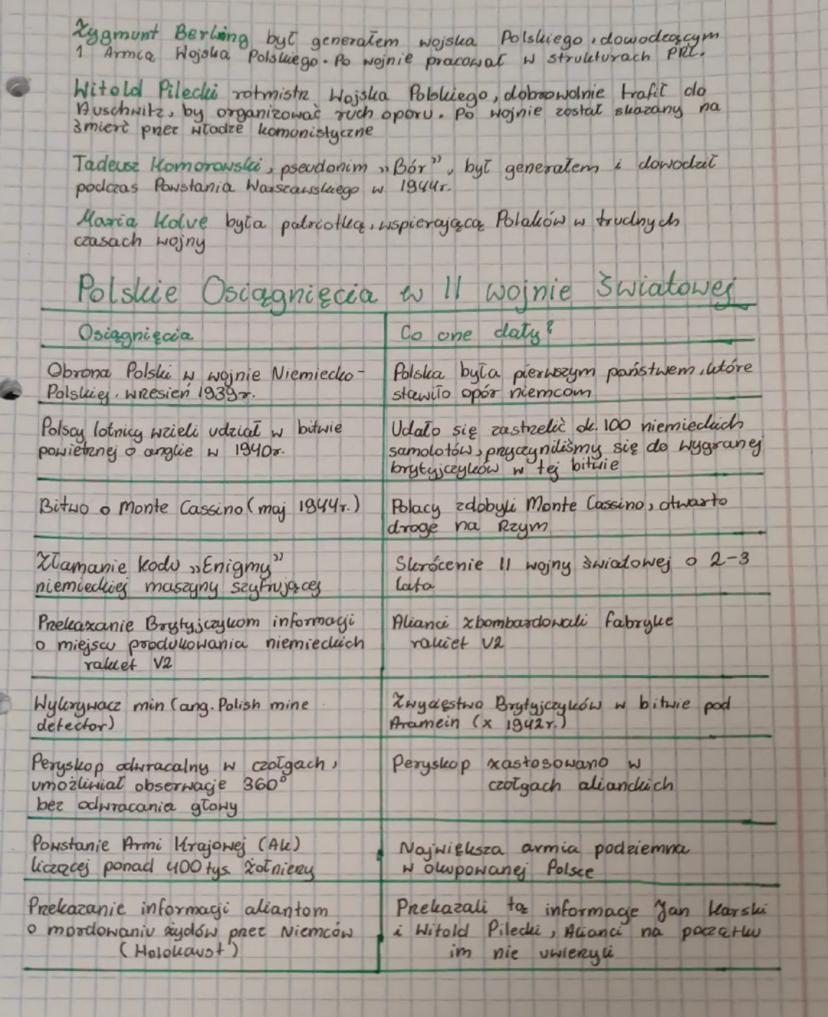 Zygmunt Berling był generałem wojska Polskiego, dowodzącym
1 Armią Wojska Polskiego. Po wojnie pracował w strukturach PRL.
Witold Pilecki rotmistrz Wojska Polskiego, dobrowolnie trafił do
Auschwitz, by organizować ruch oporu. Po wojnie został skazany na
śmierć przez władze komonistyczne
Tadeusz Komorowski, pseudonim „Bór”, był generałem i dowodził
podczas Powstania Warszawskiego w 1944r.
Maria Kolve była patriotką, wspierającą Polaków w trudnych
czasach wojny
Polskie Osiągnięcia w II wojnie Światowej
Osiągnięcia
Co one dały?
Obrona Polski w wojnie Niemiecko-
Polskiej. wrzesień 1939r.
Polska była pierwszym państwem, które
stawiło opór niemcom
Polscy lotnicy wzieli udział w bitwie
powietznej o anglie w 1940r.
Udało się zastrzelić ok. 100 niemieckich
samolotów, przyczyniliśmy się do wygranej
brytyjczyków w tej bitwie
Bitwo o Monte Cassino (maj 1944r.)
Polacy zdobyli Monte Cassino, otwarto
droge na Rzym
Złamanie kodu „Enigmy”
niemieckiej maszyny szyfrującej
Skrócenie II wojny światowej o 2-3
lata
Przekazanie Brytyjczykom informacji
o miejscu produkowania niemieckich
rakiet V2
Alianci zbombardowali fabryke
rakiet V2
Wykrywacz min (ang. Polish mine
detector)
Zwycięstwo Brytyjczyków w bitwie pod
Aramein (x 1942r.)
Peryskop odwracalny w czołgach,
umożliwiał obserwacje 360°
bez odwracania głowy
Peryskop zastosowano w
czołgach alianckich
Powstanie Armi Krajowej (AK)
liczącej ponad 400 tys. żołnierzy
Największa armia podziemna
w okupowanej Polsce
Przekazanie informacji aliantom
o mordowaniu żydów przez Niemców
(Holokaust)
Przekazali tą informacje Jan Karski
i Witold Pilecki, Alianci na początku
im nie uwierzyli